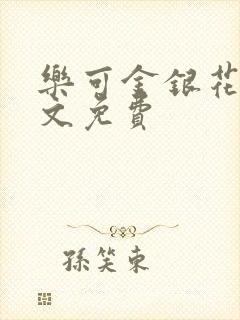 樂可金銀花
文免費
孫笑東